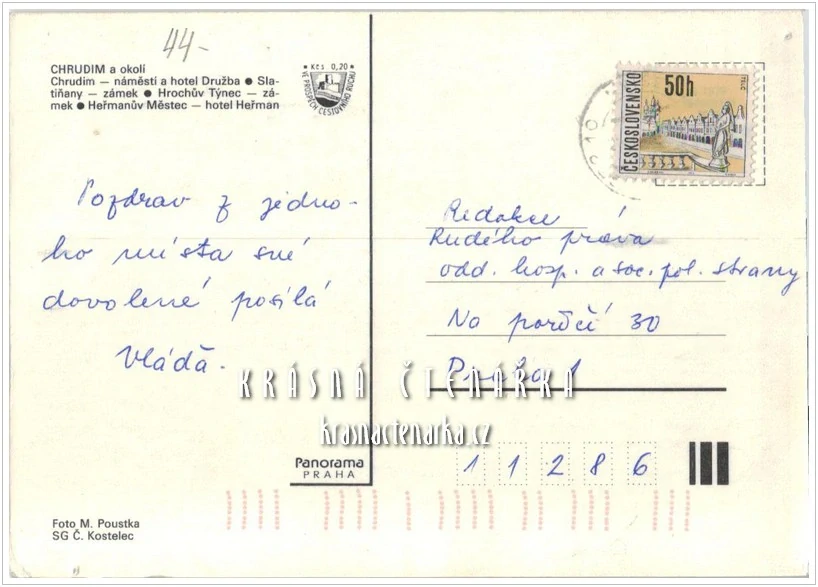 44-
CHRUDIM a okolí
Chrudim — náměstí a hotel Družba ● Sla-
tiňany — zámek ● Hrochův Týnec — zá-
mek ● Heřmanův Městec — hotel Heřman
Kčs 0,20
VE PROSPĚCH CESTOVNÍHO RUCHU
ČESKOSLOVENSKO
50h
TELČ
Pozdrav z jedno-
ho místa své
dovolené posílá
Vláďa.
Redakce
Rudého práva
odd. hosp. a soc. pol. strany
Na poříčí 30
Praha 1
KRÁSNÁ ČTENÁŘKA
krasnactenarka.cz
11286
Panorama
PRAHA
Foto M. Poustka
SG Č. Kostelec